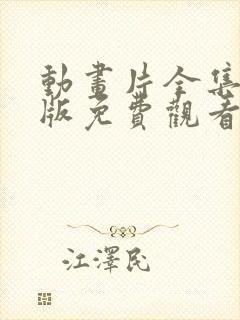 動畫片全集
版免費觀看
江澤民